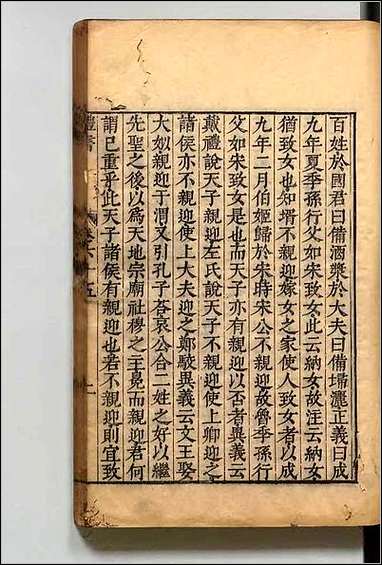 百姓於國君曰備酒漿於大夫曰備埽灑正義曰成
九年夏季孫行父如宋致女此云納女故注云納女
猶致女也知壻不親迎嫁女之家使人致女者以成
九年二月伯姬歸於宋時宋公不親迎故魯季孫行
父如宋致女是也而天子亦有親迎以否者異義云
戴禮說天子親迎左氏說天子不親迎使上卿迎之
諸侯亦不親迎使上大夫迎之鄭駮異義云文王娶
大姒親迎于渭又引孔子荅哀公合二姓之好以繼
先聖之後以爲天地宗廟社稷之主冕而親迎君何
謂已重乎此天子諸侯有親迎也若不親迎則宜致
禮書 卷六十五